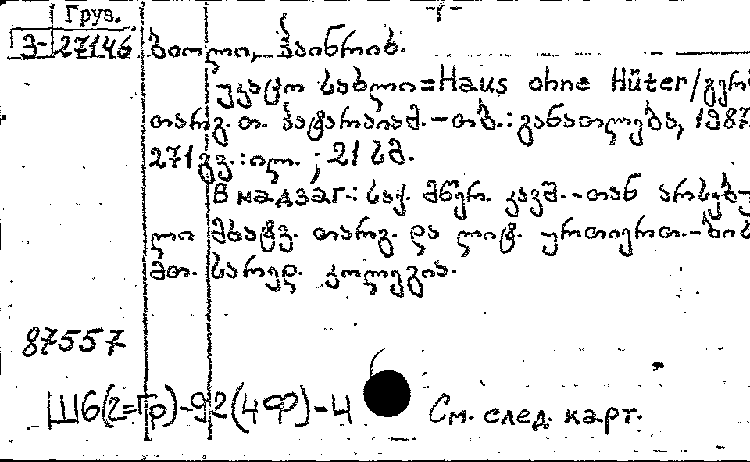 Груз. -1-
З-27146 ბიოლი, ჰაინრიხ.
უკაცო სახლი=Haus ohne Hüter/გერმ
თარგ. თ. პატარაიამ.-თბ.:განათლება, 1987
271გვ.:ილ. ; 21 სმ.
В надзаг.: საქ. მწერ. კავშ.-თან არსებუ
ლი მხატვ. თარგ. და ლიტ. ურთიერთ.-ბის
მთ. სარედ. კოლეგია.
87557
Ш6(2=Гр)-92(4Ф)-4 См. след. карт.